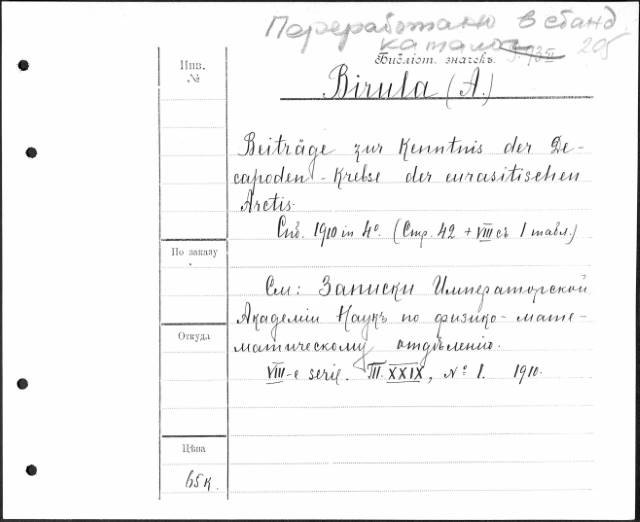 Переработано в станд
каталог
205
Инв.
№
Библіот. значекъ.
Birula (A.)
Beiträge zur Kenntnis der De-
capoden-Krebse der eurasitischen
Arctis.
Спб. 1910 in 4°. (Стр. 42 + VIII съ 1 табл.)
По заказу
См: Записки Императорской
Академіи Наукъ по физико-мате-
Откуда
матическому отдѣленію.
VIII-е serie. Т. XXIX, № 1. 1910.
Цѣна
65 к.